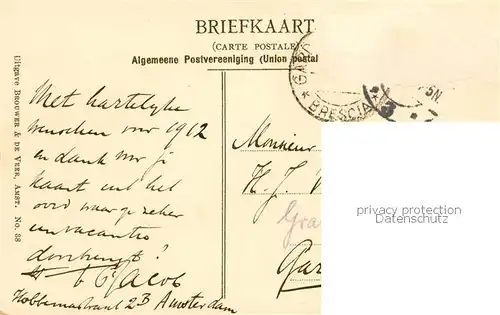 BRIEFKAART
(CARTE POSTALE)
Algemeene Postvereeniging (Union postal
Uitgave BROUWER & DE VEER, AMST. No. 38
BRESCIA
5N.
Met hartelijke
wenschen voor 1912
en dank voor je
kaart uit het
oord waar je zeker
een vacantie
doorbrengt?
Jacob
Hobbemastraat 23 Amsterdam
Monsieur
H. J. V
Gra
Gar
privacy protection
Datenschutz